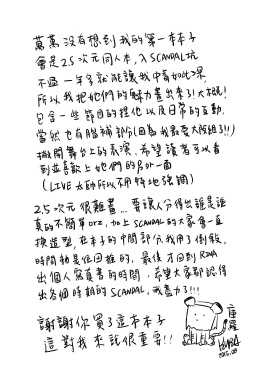 萬萬沒有想到我的第一本本子
會是2.5次元同人本,入SCANDAL坑
不過一年多就能讓我中毒如此深,
所以我把她們的魅力畫出來了!大概!
包含一些節目的捏他以及日常的互動,
當然也有腦補部分(因為我最愛大阪組3!!)
撇開舞台上的表演,希望讀者可以看
到並喜歡上她們的另外一面
(LIVE太帥所以不用特地強調)
2.5次元很難畫...要讓人分得出誰是誰
真的不簡單orz,加上SCANDAL的大家會一直
換造型,在本子的中間部分我用了倒敘,
時間軸是低回推的,最後才回到RINA
出個人寫真書的時間,希望大家都認得
出各個時期的SCANDAL,我盡力了!!!
謝謝你買了這本本子
這對我來說很重要!!
庫羅
KURO
2015.08